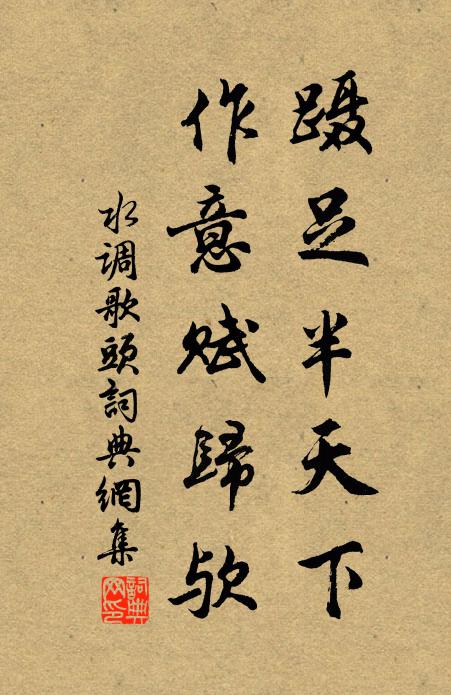 蹑足半天下
作意赋歸欤
水调歌頭詞典網集
詞典
网印